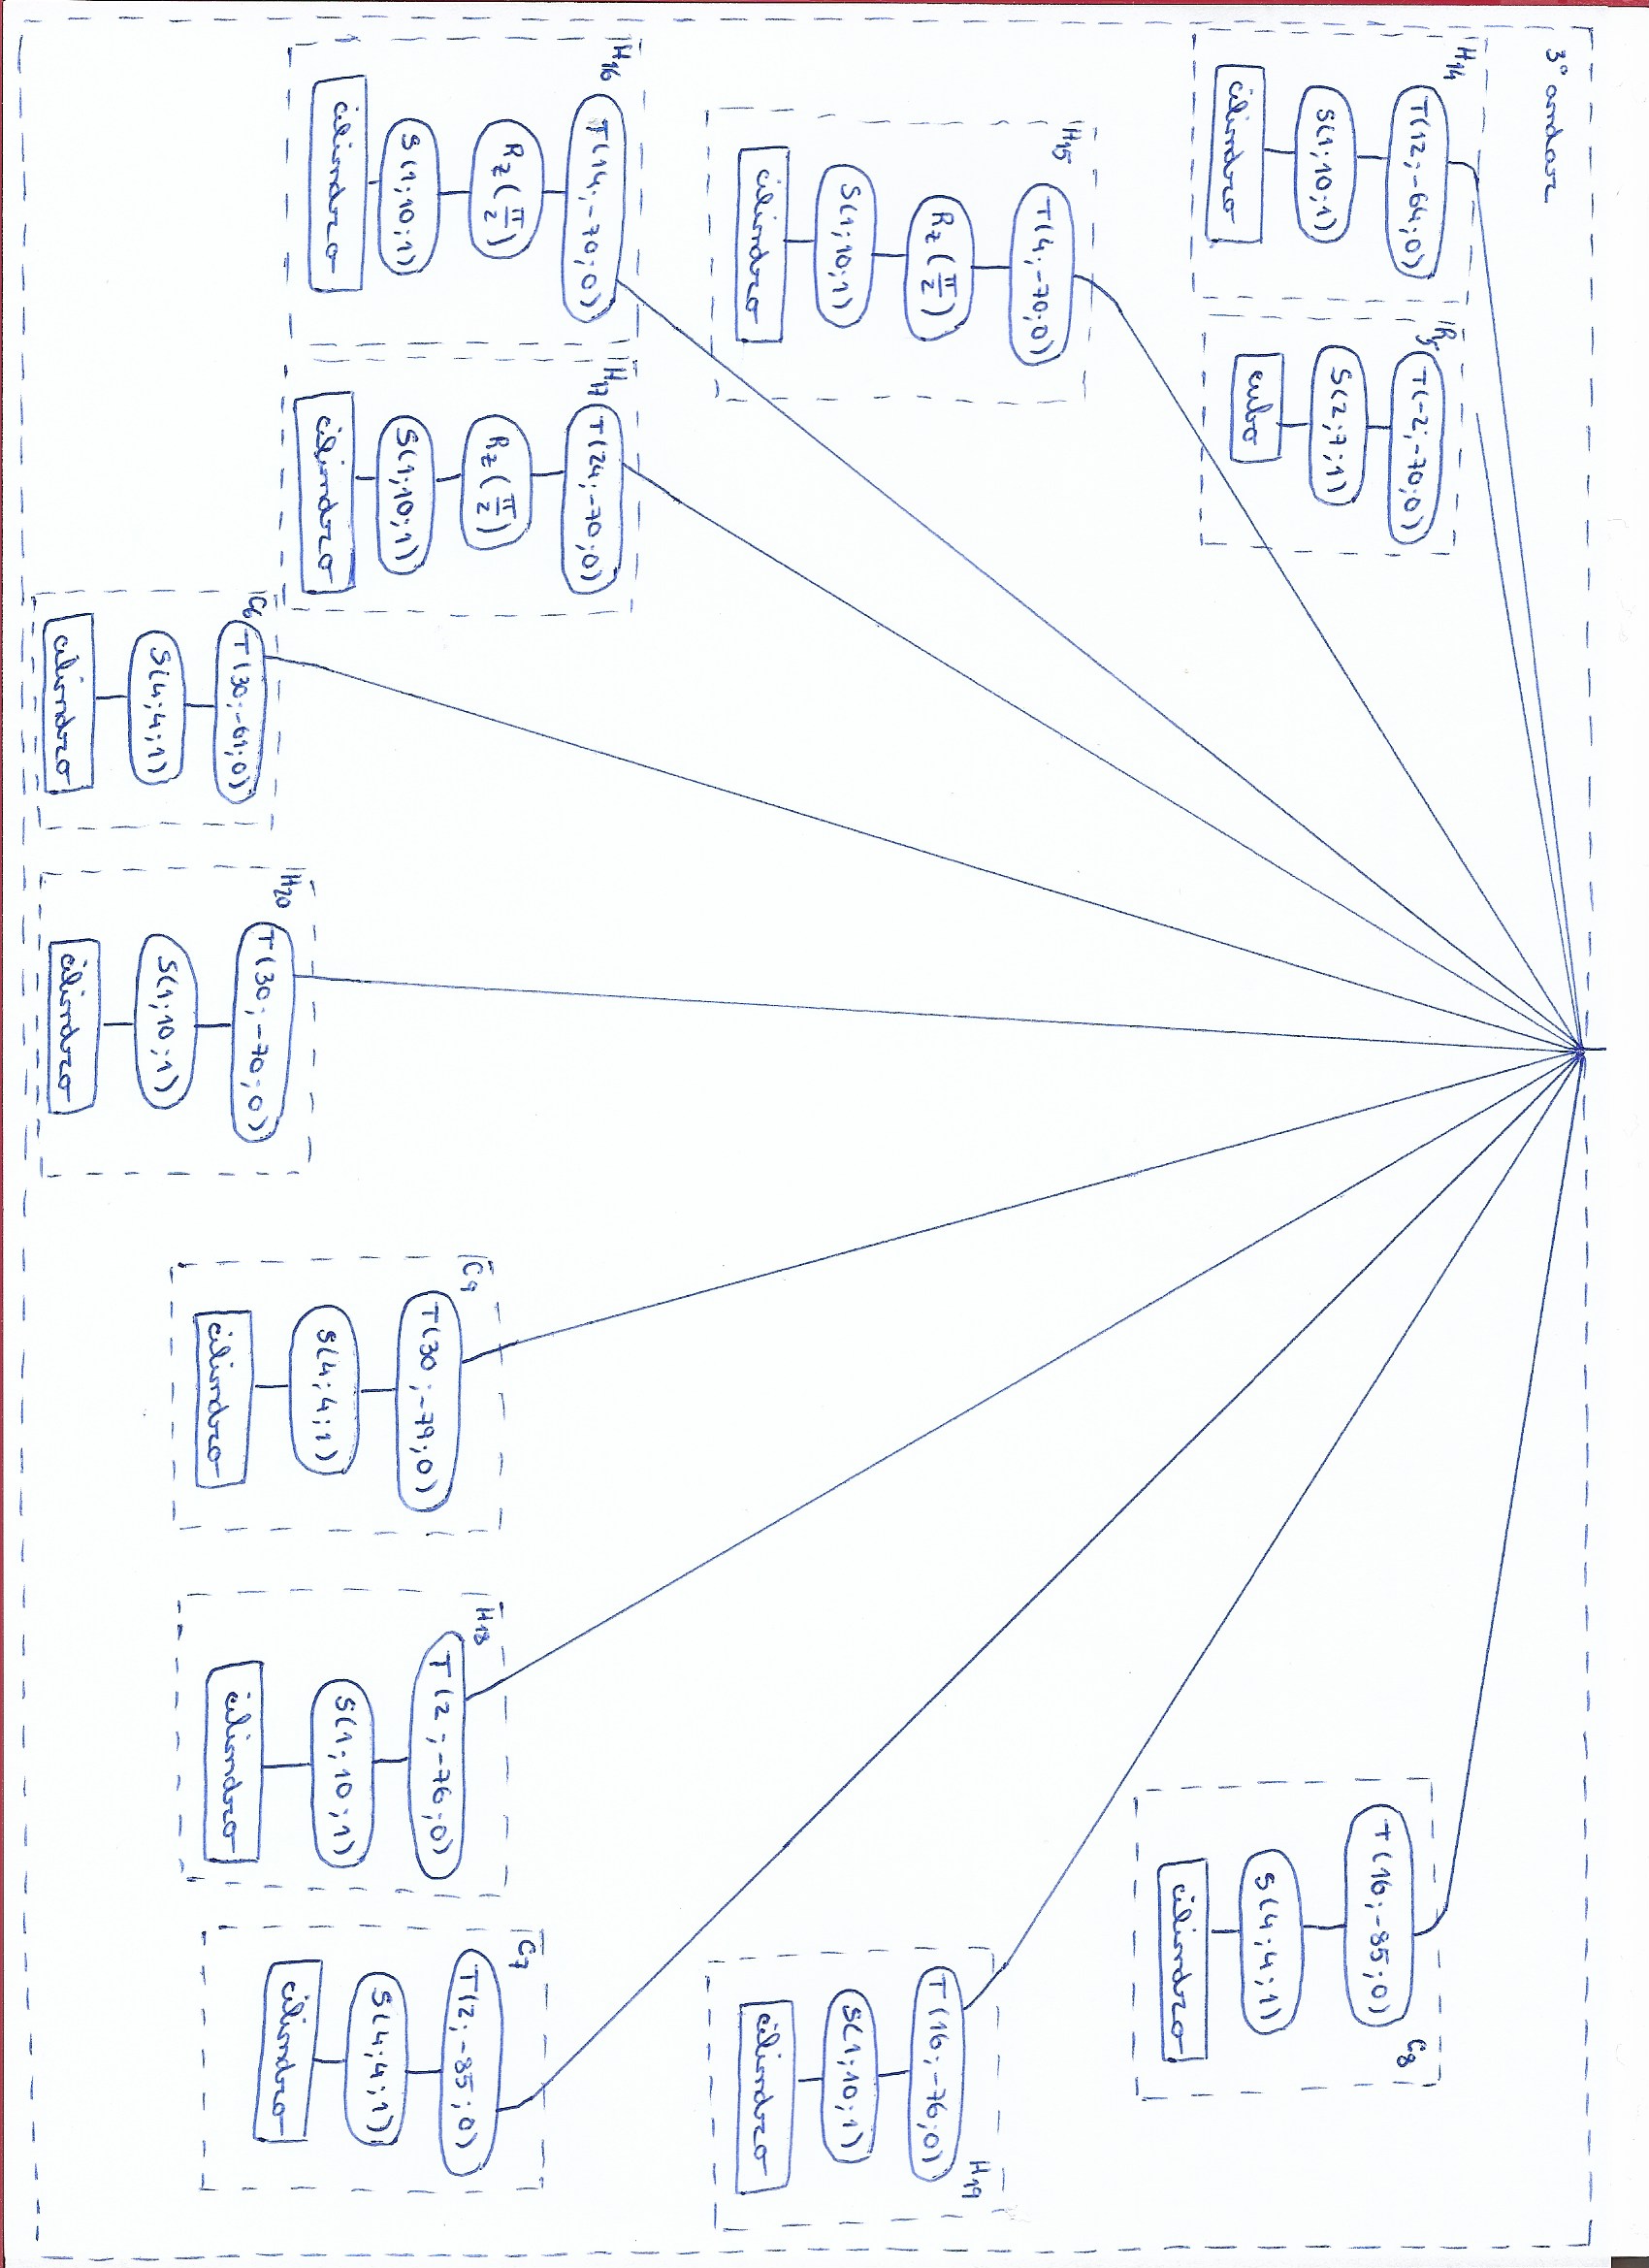 3º andar
H14
T(12;-64;0)
S(1;10;1)
cilindro
R5
T(-2;-70;0)
S(2;7;1)
cubo
H15
T(4;-70;0)
Rz(π/2)
S(1;10;1)
cilindro
H16
T(14;-70;0)
Rz(π/2)
S(1;10;1)
cilindro
H17
T(24;-70;0)
Rz(π/2)
S(1;10;1)
cilindro
C6
T(30;-61;0)
S(4;4;1)
cilindro
H20
T(30;-70;0)
S(1;10;1)
cilindro
C9
T(30;-79;0)
S(4;4;1)
cilindro
H18
T(2;-76;0)
S(1;10;1)
cilindro
C7
T(2;-85;0)
S(4;4;1)
cilindro
H19
T(16;-76;0)
S(1;10;1)
cilindro
C8
T(16;-85;0)
S(4;4;1)
cilindro